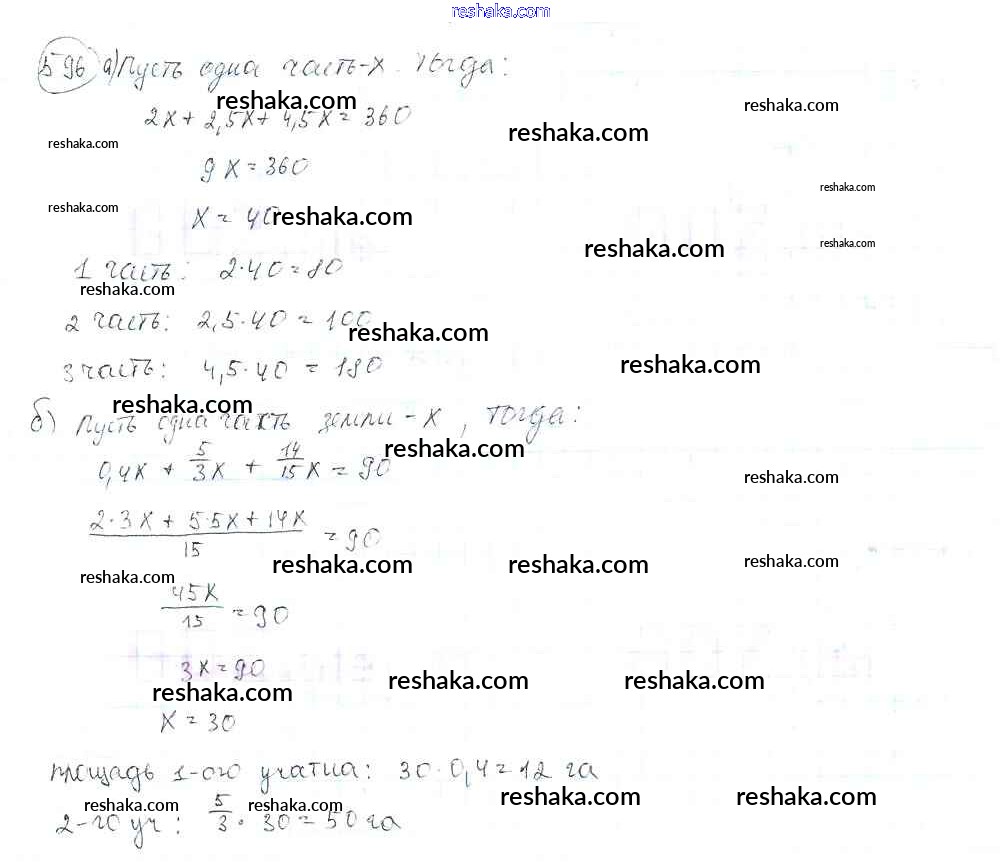 reshaka.com
596 а) Пусть одна часть-х. Тогда:
reshaka.com reshaka.com
2х + 2,5х + 4,5х = 360 reshaka.com
reshaka.com
9х = 360 reshaka.com
reshaka.com х = 40 reshaka.com
reshaka.com reshaka.com
1 часть: 2·40=80
reshaka.com
2 часть: 2,5·40 = 100 reshaka.com
3 часть: 4,5·40 = 180 reshaka.com
reshaka.com
б) Пусть одна часть земли - х, тогда:
reshaka.com
0,4х + 5/3 х + 14/15 х = 90 reshaka.com
(2·3х + 5·5х + 14х)/15 = 90
reshaka.com reshaka.com reshaka.com
reshaka.com
45х/15 = 90
3х = 90
reshaka.com reshaka.com reshaka.com
х = 30
площадь 1-ого учатка: 30·0,4 = 12 га
reshaka.com reshaka.com reshaka.com reshaka.com
2-го уч: 5/3 · 30 = 50 га